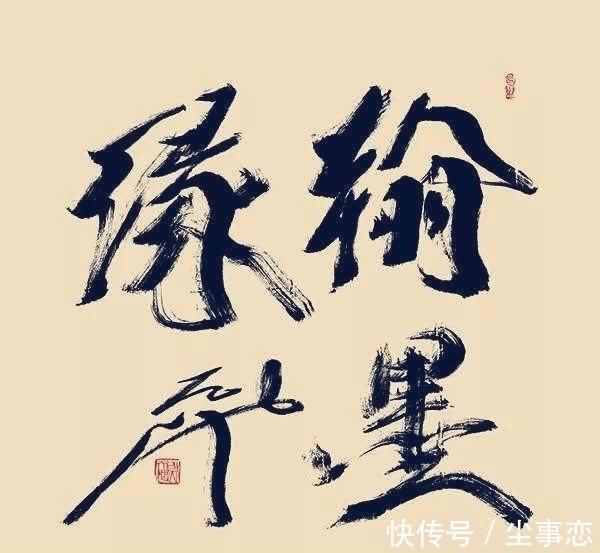 翰墨
缘
快传号 / 坐事恋